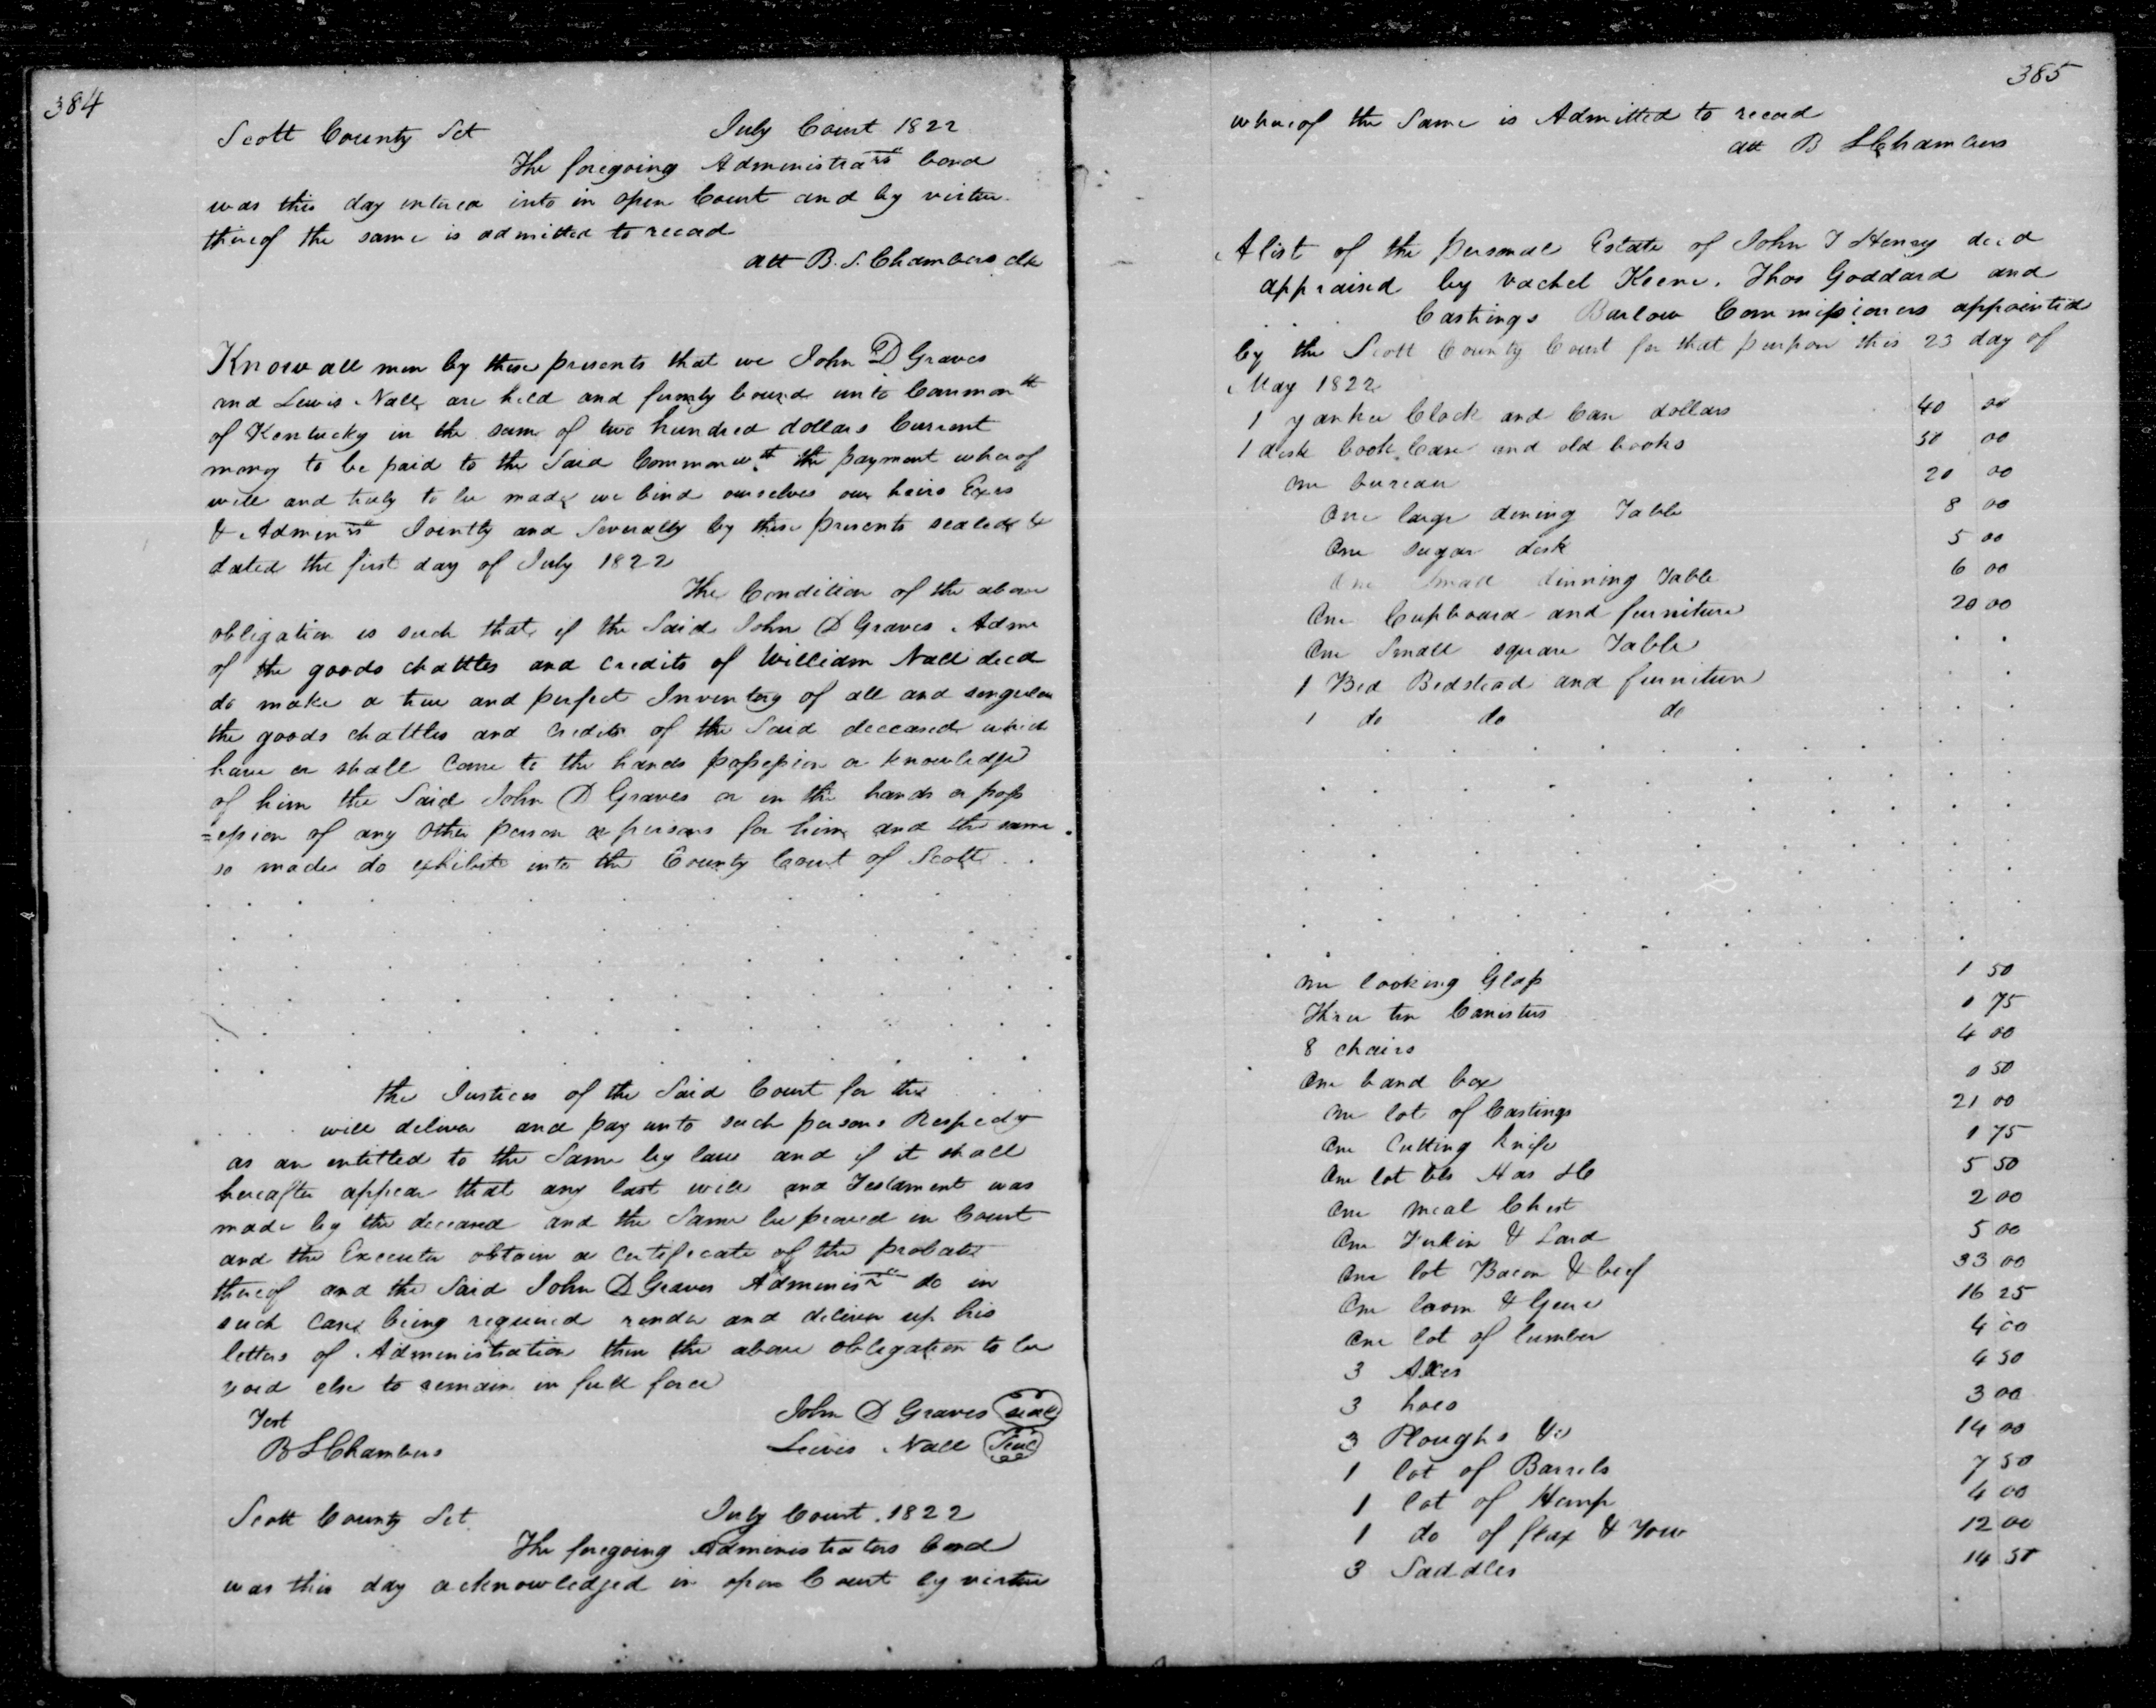 384
Scott County Sct July Court 1822
The foregoing Administra^rs bond
was this day entered into in open Court and by virtue
thereof the same is admitted to record
att B. S. Chambers clk
Know all men by these presents that we John D Graves
and Lewis Nall are held and firmly bound unto Common^th
of Kentucky in the sum of two hundred dollars Current
money to be paid to the Said Commonw^th the payment whereof
will and truly to be made we bind ourselves our heirs Exers
& Admen^rs Jointly and Severally by these presents sealed &
dated the first day of July 1822
The Condition of the above
obligation is such that if the Said John D Graves Admr
of the goods chattles and credits of William Nall decd
do make a true and perfect Inventory of all and singular
the goods chattles and credits of the Said deceased which
have or shall Come to the hands possession or knowledge
of him the Said John D Graves or in the hands or poss
=ession of any other person or persons for him and the same
so made do exhibit into the County Court of Scott
the Justices of the Said Court for the
will deliver and pay unto such persons Respecly
as are entitled to the Same by law and if it shall
hereafter appear that any last will and Testament was
made by the deceased and the Same be proved in Court
and the Executor obtain a certificate of the probate
thereof and the Said John D Graves Adminis^r do in
such Case being required render and deliver up his
letters of Administration then the above obligation to be
void else to remain in full force
Test John D Graves seal
B S Chambers Lewis Nall Seal
Scott County Sct July Court 1822
The foregoing Administrators bond
was this day acknowledged in open Court by virtue
385
whereof the Same is Admitted to record
att B S Chambers
A list of the personal Estate of John T Henry decd
appraised by Vachel Keene, Thos Goddard and
Castings Barlow Commissioners appointed
by the Scott County Court for that purpose this 23 day of
May 1822
1 yankee Clock and Case dollars 40 00
1 desk book Case and old books 50 00
one bureau 20 00
One large dining Table 8 00
One sugar desk 5 00
One Small dinning Table 6 00
One Cupboard and furniture 20 00
One Small square Table
1 Bed Bedstead and furniture
1 do do do
one looking Glass 1 50
Three tin Canisters 0 75
8 chairs 4 00
One band box 0 50
one lot of Castings 21 00
One Cutting knife 1 75
One lot bls 5 50
One meal Chest 2 00
One Firkin & Lard 5 00
One lot Bacon & beef 33 00
One loom & Geers 16 25
One lot of lumber 4 00
3 Axes 4 50
3 hoes 3 00
3 Ploughs &c 14 00
1 lot of Barrels 7 50
1 lot of Hemp 4 00
1 do of flax & Tow 12 00
3 Saddles 14 50